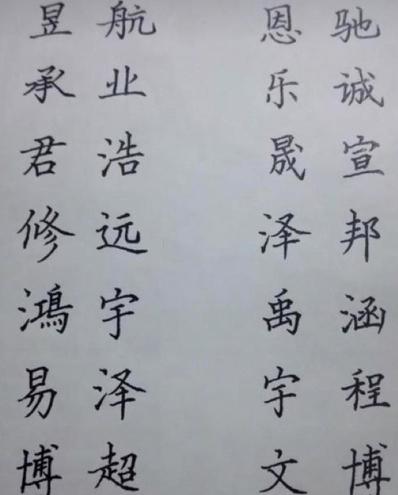 昱航 恩驰
承业 乐诚
君浩 晟宣
修远 泽邦
鴻宇 禹涵
易泽 宇程
博超 文博